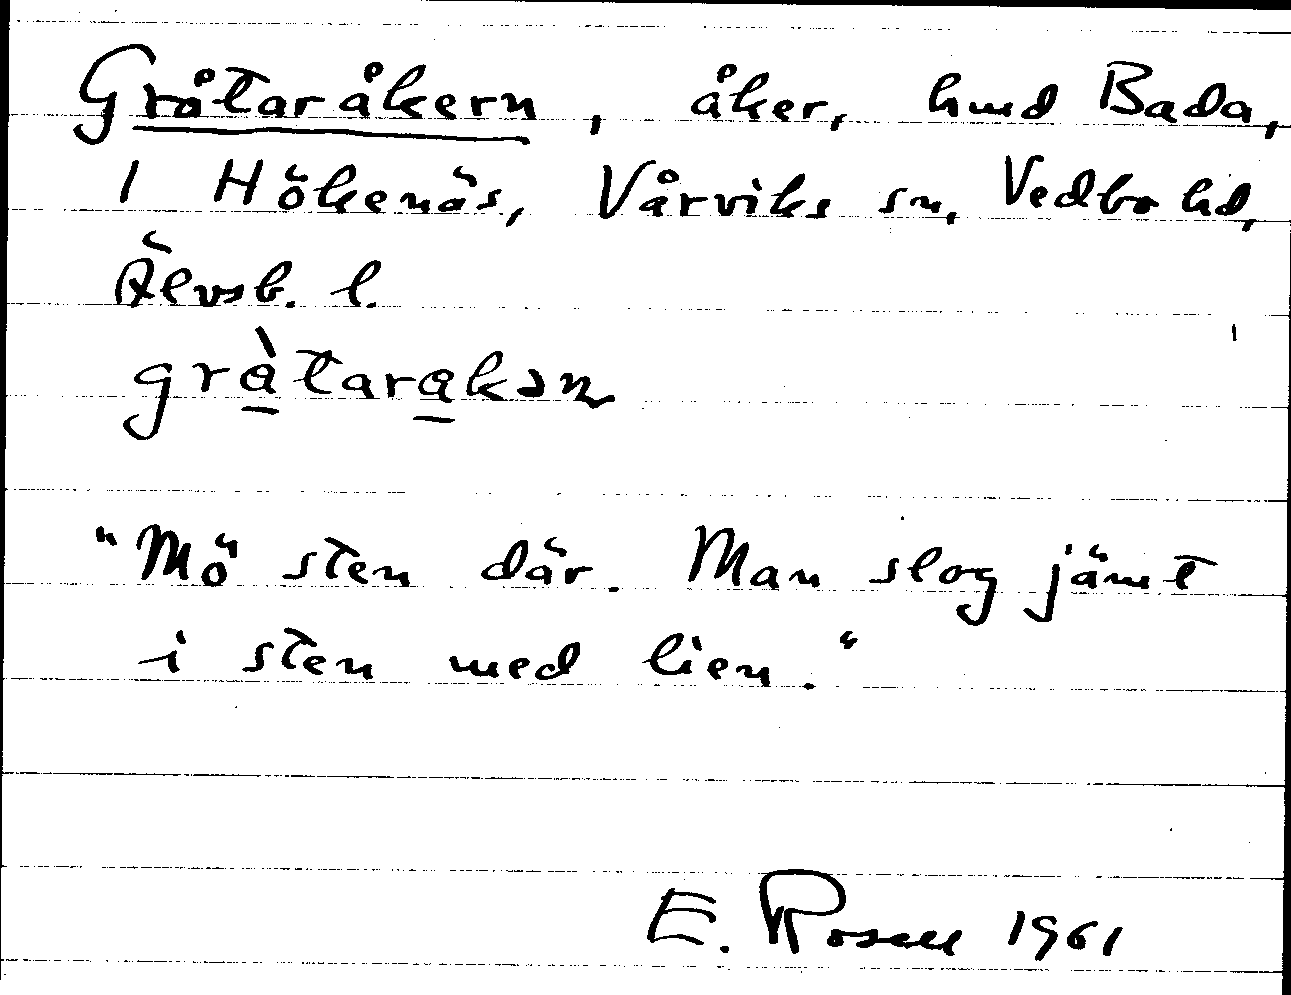 Gråtaråkern, åker, hmd Bada,
1 Hökenäs, Vårviks sn, Vedbo hd,
Älvsb. l.
gràtarakən
"Mö sten där. Man slog jämt
i sten med lien."
E. Rosell 1961